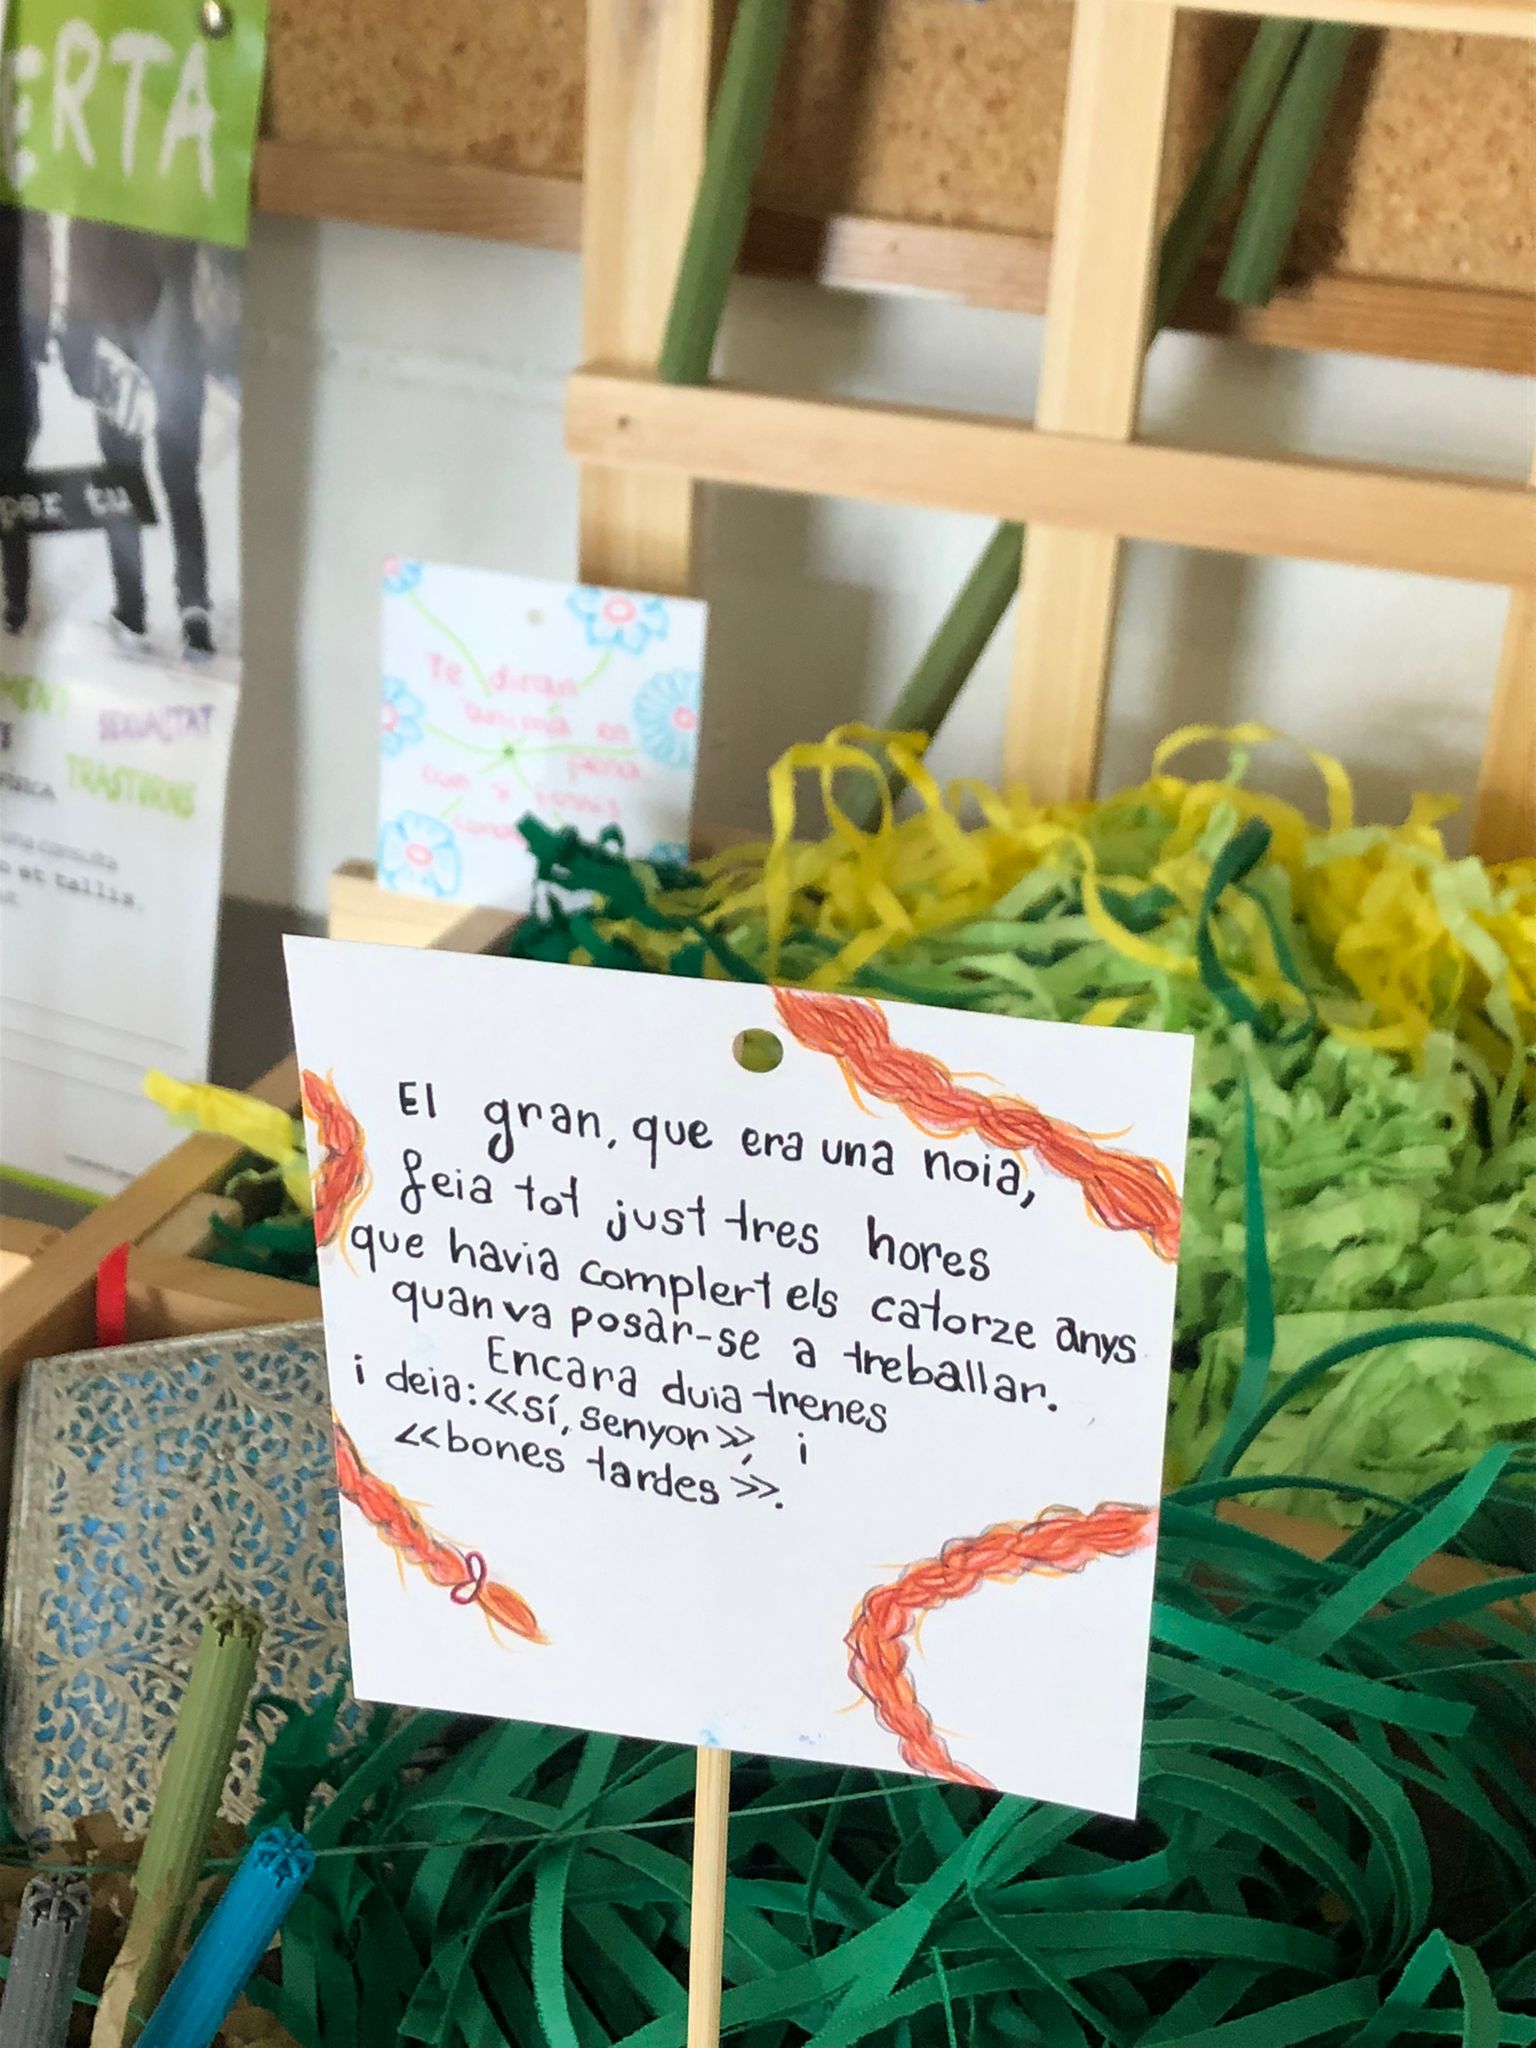 ERTA
per tu
SEXUALITAT
TRASTORNS
Te diran
ànima en
pena
com si fossis
El gran, que era una noia,
feia tot just tres hores
que havia complert els catorze anys
quan va posar-se a treballar.
Encara duia trenes
i deia: «sí, senyor», i
«bones tardes».